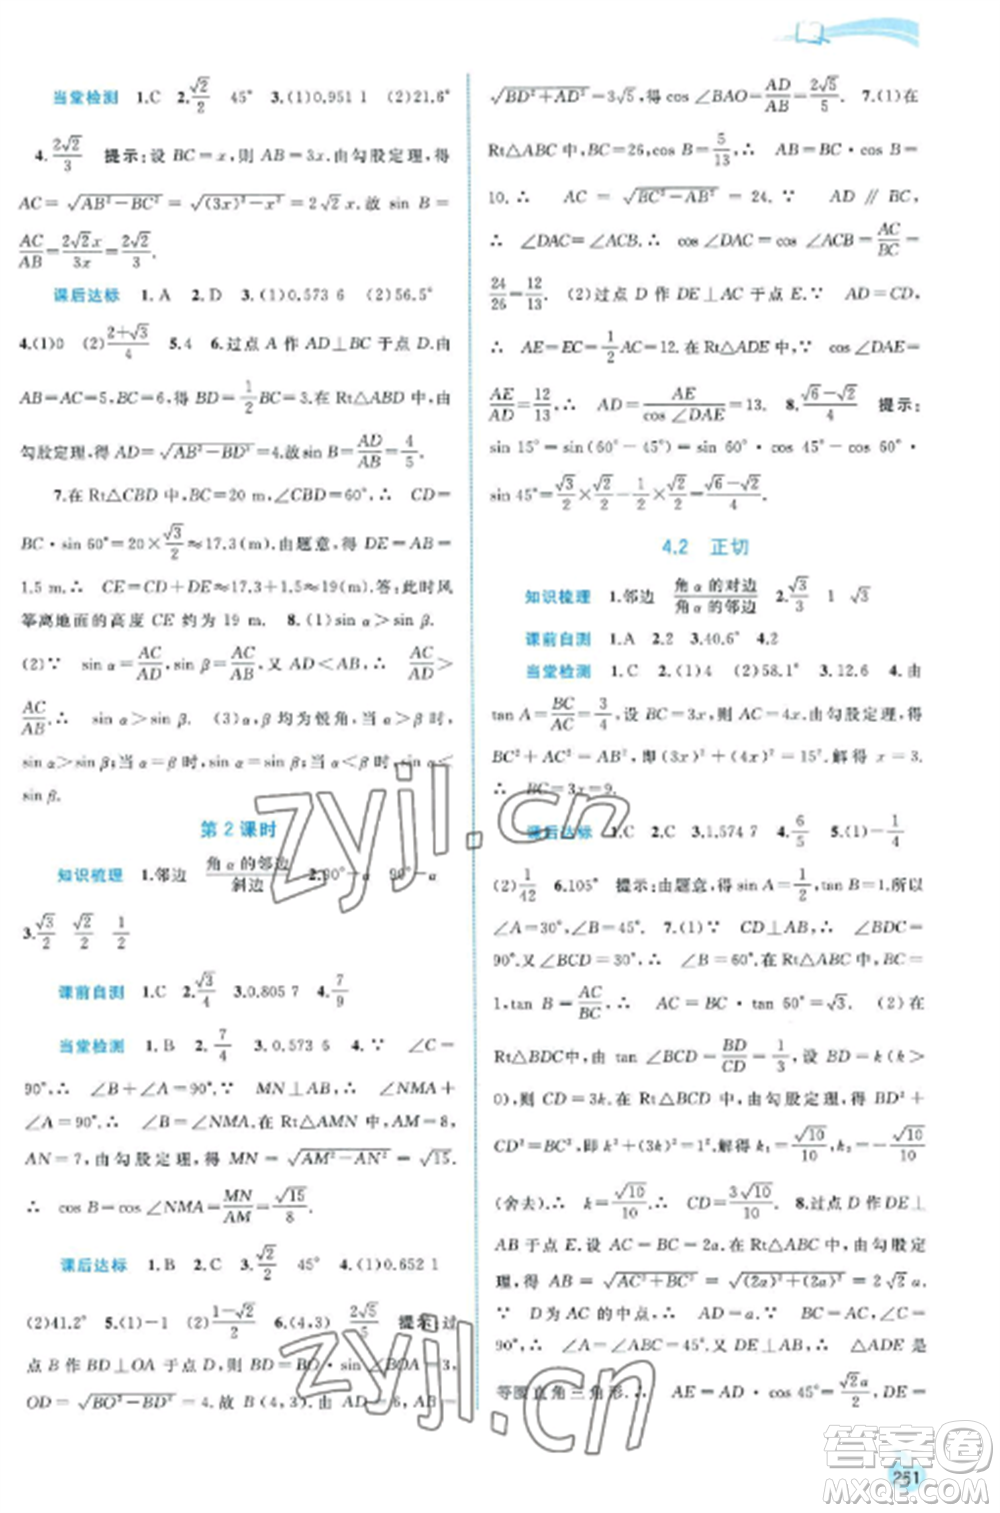 当堂检测 1.C 2.√2/2 45° 3.(1)0.951 1 (2)21.6°
4.2√2/3 提示:设 BC=x,则 AB=3x.由勾股定理,得
AC=√(AB²-BC²)=√((3x)²-x²)=2√2x.故 sin B=
AC/AB=2√2x/3x=2√2/3.
课后达标 1.A 2.D 3.(1)0.573 6 (2)56.5°
4.(1)0 (2)(2+√3)/4 5.4 6.过点 A 作 AD⊥BC 于点 D.由
AB=AC=5,BC=6,得 BD=1/2BC=3.在 Rt△ABD 中,由
勾股定理,得 AD=√(AB²-BD²)=4.故 sin B=AD/AB=4/5.
7.在 Rt△CBD 中,BC=20 m,∠CBD=60°,∴ CD=
BC·sin 60°=20×√3/2≈17.3(m).由题意,得 DE=AB=
1.5 m.∴ CE=CD+DE≈17.3+1.5≈19(m).答:此时风
筝离地面的高度 CE 约为 19 m. 8.(1)sin α sin β.
(2)∵ sin α=AC/AD,sin β=AC/AB,又 AD<AB,∴ AC/AD>
AC/AB.∴ sin α>sin β. (3)α,β 均为锐角,当 α>β 时,
sin α>sin β;当 α=β 时,sin α=sin β;当 α<β 时,sin α<
sin β.
第 2 课时
知识梳理 1.邻边 角 α 的邻边/斜边 2.90°-α 90°-α
3.√3/2 √2/2 1/2
课前自测 1.C 2.√3/4 3.0.805 7 4.7/9
当堂检测 1.B 2.7/4 3.0.573 6 4.∵ ∠C=
90°,∴ ∠B+∠A=90°.∵ MN⊥AB,∴ ∠NMA+
∠A=90°.∴ ∠B=∠NMA.在 Rt△AMN 中,AM=8,
AN=7,由勾股定理,得 MN=√(AM²-AN²)=√15.
∴ cos B=cos∠NMA=MN/AM=√15/8.
课后达标 1.B 2.C 3.√2/2 45° 4.(1)0.652 1
(2)41.2° 5.(1)-1 (2)(1-√2)/2 6.(4,3) 2√5/5 提示:过
点 B 作 BD⊥OA 于点 D,则 BD=BO·sin∠BOA=3,
OD=√(BO²-BD²)=4.故 B(4,3).故 AD=6,AB=
√(BD²+AD²)=3√5,得 cos∠BAO=AD/AB=2√5/5. 7.(1)在
Rt△ABC 中,BC=26,cos B=5/13,∴ AB=BC·cos B=
10.∴ AC=√(BC²-AB²)=24.∵ AD∥BC,
∴ ∠DAC=∠ACB.∴ cos∠DAC=cos∠ACB=AC/BC=
24/26=12/13. (2)过点 D 作 DE⊥AC 于点 E.∵ AD=CD,
∴ AE=EC=1/2AC=12.在 Rt△ADE 中,∵ cos∠DAE=
AE/AD=12/13,∴ AD=AE/cos∠DAE=13. 8.(√6-√2)/4 提示:
sin 15°=sin(60°-45°)=sin 60°·cos 45°-cos 60°·
sin 45°=√3/2×√2/2-1/2×√2/2=(√6-√2)/4.
4.2 正切
知识梳理 1.邻边 角 α 的对边/角 α 的邻边 2.√3/3 1 √3
课前自测 1.A 2.2 3.40.6° 4.2
当堂检测 1.C 2.(1)4 (2)58.1° 3.12.6 4.由
tan A=BC/AC=3/4,设 BC=3x,则 AC=4x.由勾股定理,得
BC²+AC²=AB²,即(3x)²+(4x)²=15².解得 x=3.
∴ BC=3x=9.
课后达标 1.C 2.C 3.1.574 7 4.6/5 5.(1)-1/4
(2)1/42 6.105° 提示:由题意,得 sin A=1/2,tan B=1.所以
∠A=30°,∠B=45°. 7.(1)∵ CD⊥AB,∴ ∠BDC=
90°.又 ∠BCD=30°,∴ ∠B=60°.在 Rt△ABC 中,BC=
1,tan B=AC/BC,∴ AC=BC·tan 60°=√3. (2)在
Rt△BDC中,由 tan∠BCD=BD/CD=1/3,设 BD=k(k>
0),则 CD=3k.在 Rt△BCD 中,由勾股定理,得 BD²+
CD²=BC²,即 k²+(3k)²=1.解得 k₁=√10/10,k₂=-√10/10
(舍去).∴ k=√10/10.∴ CD=3√10/10. 8.过点 D 作 DE⊥
AB 于点 E.设 AC=BC=2a.在 Rt△ABC 中,由勾股定
理,得 AB=√(AC²+BC²)=√((2a)²+(2a)²)=2√2a.
∵ D为 AC 的中点,∴ AD=a.又∵ AC=BC,∠C=
90°,∴ ∠A=∠ABC=45°.又 DE⊥AB,∴ △ADE 是
等腰直角三角形.∴ AE=AD·cos 45°=√2a/2,DE=
zyjl.cn
zyjl.cn
答案圈
MXQE.COM
251